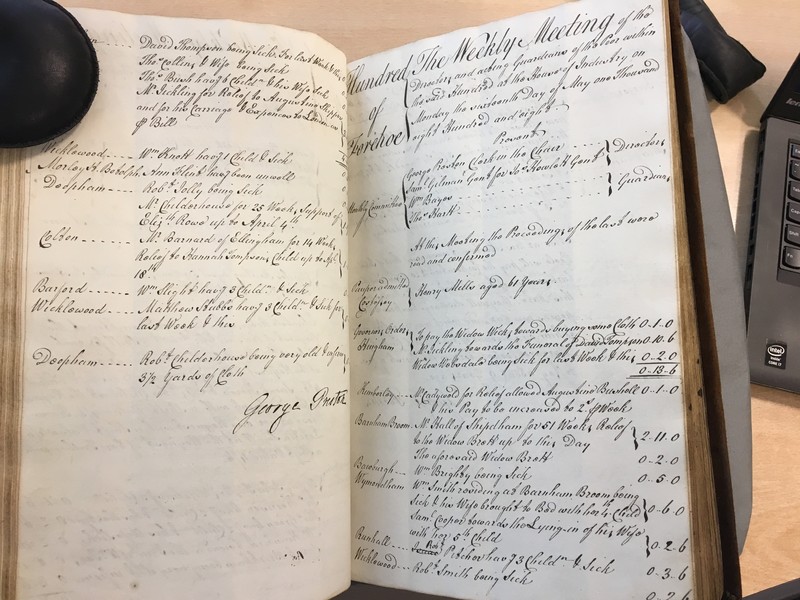 David Thompson being Sick, For last Week & this
Thos. Collins & Wife being Sick
Thos. Bush havg 6 Childn & his Wife Sick
Mr. Sickling for Relief to Augustine
and for his Carriage & Expences to
⅌ Bill
Wicklewood ---- Wm. Knott havg 1 Child & Sick
Morley St. Botolph Ann Flint havg been unwell
Deopham ---- Robt. Jolly being Sick
Mr. Childerhouse for 25 Weeks Support of
Elizth. Rowe up to April 4th
Colton ---- Mr. Barnard of Ellingham for 14 Weeks
Relief to Hannah Tompsons Child up to
18th
Barford ---- Wm. Sleight havg 3 Childn & Sick
Wicklewood ---- Matthew Stubbs havg 3 Childn & Sick for
last Week & this
Deopham ---- Robt. Childerhouse being very old & infirm
3½ Yards of Cloth
George Preston
Hundred
of
Forehoe
The Weekly Meeting of the
Directors and acting Guardians of the Poor within
the said Hundred at the House of Industry on
Monday the sixteenth Day of May one Thousand
eight Hundred and eight
Present
Weekly Committee
George Preston Clerk in the Chair
Saml. Gilman Gent for Jos. Howlett Gent
Directors
Wm. Bayes
Thos. Hart
Guardians
At this Meeting the Proceedings of the last were
read and confirmed
Pauper admitted
Costessey
Henry Mills aged 61 Years
Hingham
To pay the Widow Wick, towards buying some Cloth 0-1-0
Mr. Sickling towards the Funeral of David Tompson 0-10-6
Widow Hobsdale being Sick for last Week & this 0-2-0
0-13-6
Kimberley -- Mr. Cadywold for Relief allowed Augustine Bushell 0-1-0
& his Pay to be increased to 2s. ⅌ Week
Barnham Broom Mr. Hall of Shipdham for 51 Weeks Relief
to the Widow Brett up to this Day 2-11-0
The aforesaid Widow Brett 0-2-0
Bawburgh --- Wm. Brighty being Sick 0-5-0
Wymondham Wm. Smith residing at Barnham Broom being
Sick & his Wife brought to Bed with her 4th Child 0-6-0
Saml. Cooper towards the Lying-in of his Wife
with her 5th Child 0-2-6
Runhall --- Robt. Pitcher havg 3 Childn & Sick 0-3-6
Wicklewood --- Robt. Smith being Sick 0-2-6
intel
inside
CORE i7
Caps
Shift
Fn